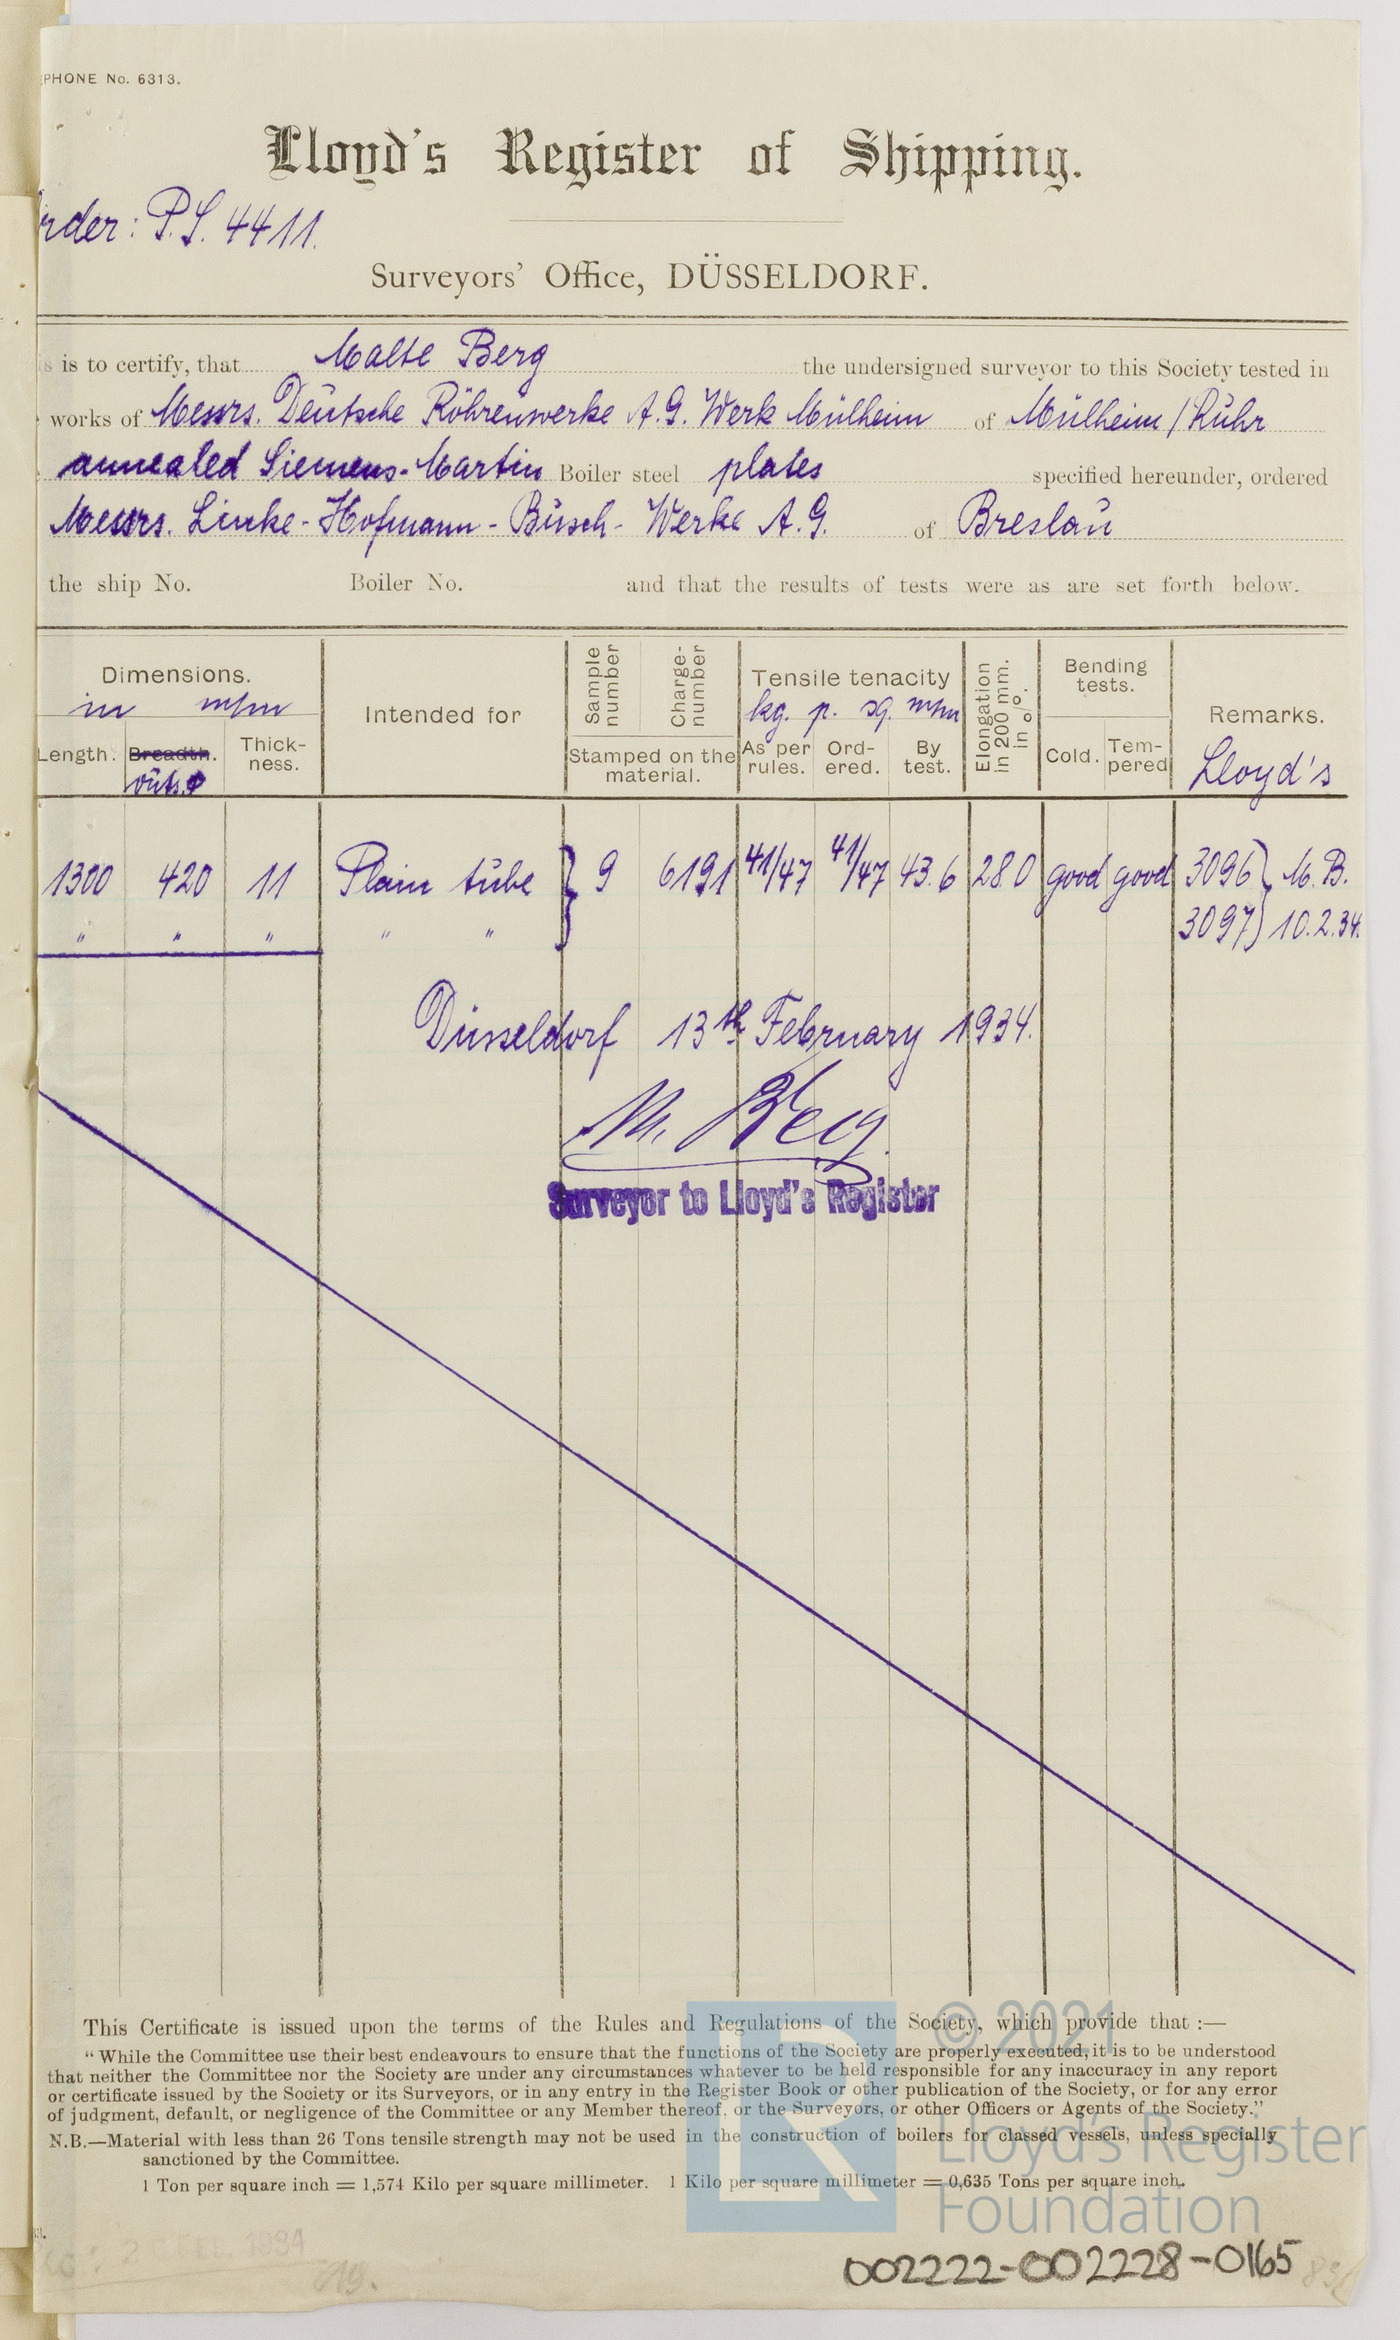 PHONE No. 6313.
Lloyd's Register of Shipping.
rder: P.S. 4411.
Surveyors' Office, DÜSSELDORF.
is to certify, that Malte Berg the undersigned surveyor to this Society tested in
works of Messrs. Deutsche Röhrenwerke A.G. Werk Mülheim of Mülheim/Ruhr
annealed Siemens-Martin Boiler steel plates specified hereunder, ordered
Messrs. Linke-Hofmann-Busch-Werke A.G. of Breslau
the ship No. Boiler No. and that the results of tests were as are set forth below.
Dimensions.
in m/m
Length. Breadth. Thick-
ness.
outs. ø
Intended for
Sample
number
Charge-
number
Stamped on the
material.
Tensile tenacity
kg. p. sq. m/m
As per
rules.
Ord-
ered.
By
test.
Elongation
in 200 mm.
in o/o.
Bending
tests.
Cold. Tem-
pered
Remarks.
Lloyd's
1300 420 11 Plain tube } 9 6191 41/47 41/47 43.6 28.0 good good 3096 } M.B.
" " " " " 3097 } 10.2.34.
Düsseldorf 13th February 1934.
M. Berg
Surveyor to Lloyd's Register
This Certificate is issued upon the terms of the Rules and Regulations of the Society, which provide that :—
“ While the Committee use their best endeavours to ensure that the functions of the Society are properly executed, it is to be understood
that neither the Committee nor the Society are under any circumstances whatever to be held responsible for any inaccuracy in any report
or certificate issued by the Society or its Surveyors, or in any entry in the Register Book or other publication of the Society, or for any error
of judgment, default, or negligence of the Committee or any Member thereof, or the Surveyors, or other Officers or Agents of the Society.”
N.B.—Material with less than 26 Tons tensile strength may not be used in the construction of boilers for classed vessels, unless specially
sanctioned by the Committee.
1 Ton per square inch = 1,574 Kilo per square millimeter. 1 Kilo per square millimeter = 0,635 Tons per square inch.
© 2021
LR
Lloyd's Register
Foundation
002222-002228-0165